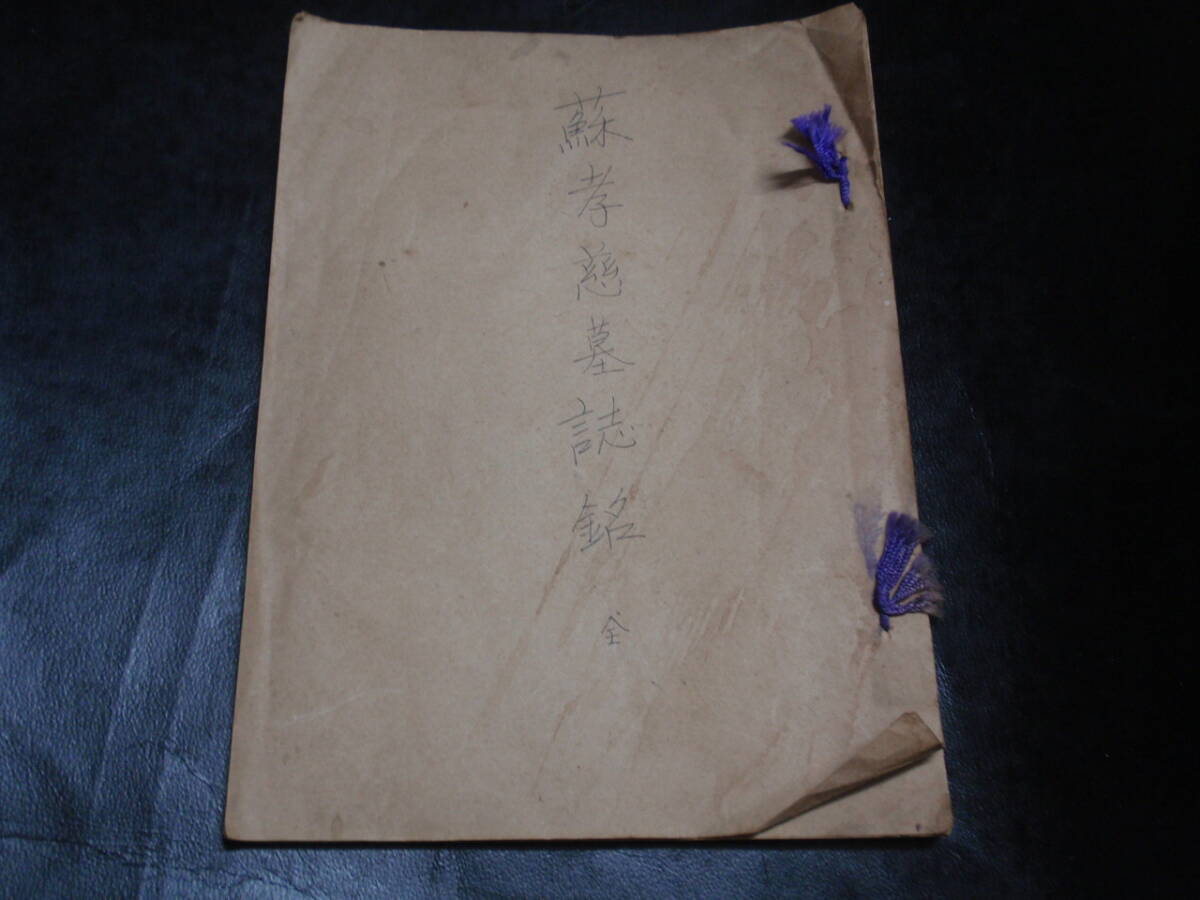 蘇孝慈墓誌銘 全